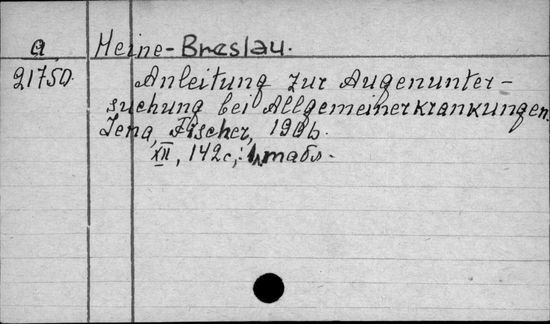 a Heine-Breslau.
21750. Anleitung zur Augenunter-
suchung bei Allgemeinerkrankungen.
Jena, Fischer, 1906.
XII, 142c., 1 табл.